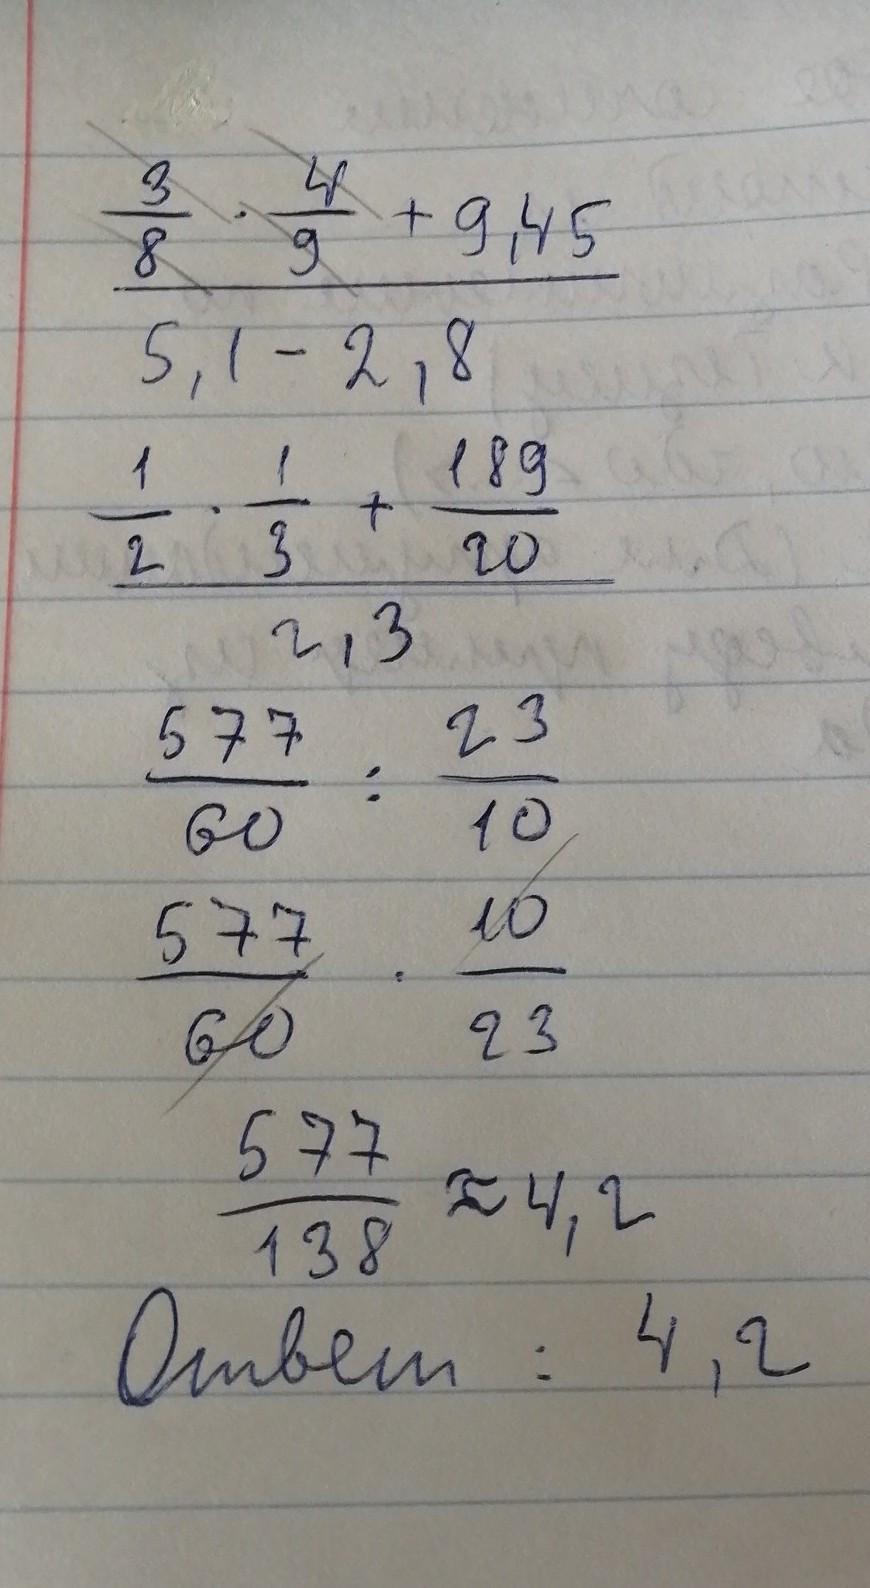 3/8 · 4/9 + 9,45
5,1 - 2,8
1/2 · 1/3 + 189/20
2,3
577/60 : 23/10
577/60 · 10/23
577/138 ≈ 4,2
Ответ : 4,2